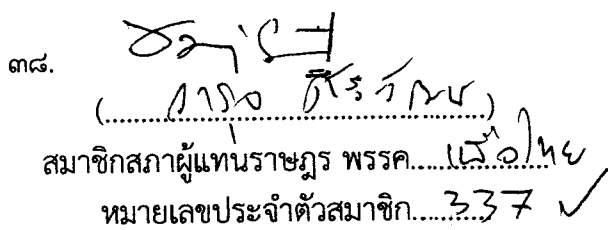 ๓๘.
(จารุอ ศิริวัฒน)
สมาชิกสภาผู้แทนราษฎร พรรค เพื่อไทย
หมายเลขประจำตัวสมาชิก 337 ✓